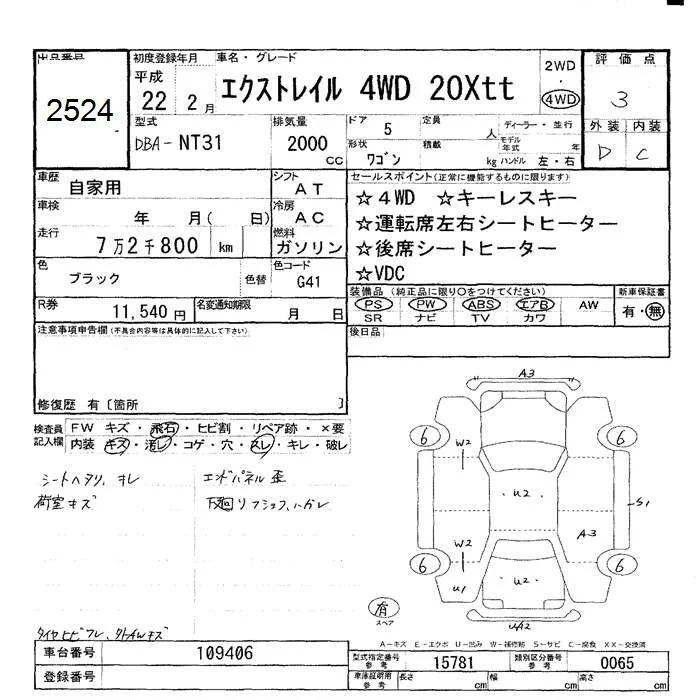 出品番号
2524
初度登録年月
平成
22 2月
車名・グレード
エクストレイル 4WD 20Xtt
2WD
・
4WD
評価点
3
外装 内装
D C
型式
DBA-NT31
排気量
2000
cc
ドア 5
定員 人
ディーラー・並行
形状 ワゴン
積載 kg
モデル年式 年
ハンドル 左・右
車歴 自家用
シフト AT
車検 年 月( 日)
冷房 AC
走行 7万2千800 km
燃料 ガソリン
色 ブラック 色替
色コード G41
R券 11,540円
名変通知期限 月 日
セールスポイント(正常に機能するものに限ります)
☆4WD ☆キーレスキー
☆運転席左右シートヒーター
☆後席シートヒーター
☆VDC
装備品(純正品に限り○をつけてください)
PS PW ABS エアB AW
SR ナビ TV カワ
新車保証書
有・無
注意事項申告欄(不具合内容等は具体的に記入して下さい)
後日品
修復歴 有〔箇所 〕
検査員記入欄
FW キズ・飛石・ヒビ割・リペア跡・×要
内装 キズ・汚レ・コゲ・穴・スレ・キレ・破レ
シートヘタリ、キレ
荷室キズ
エンドパネル歪
下廻り
A3
6 6
W2
U2
U2
S1
A3
W2
6 6
U1
U2
UA2
有
スペア
A-キズ E-エクボ U-凹み W-補修跡 S-サビ C-腐食 XX-交換済
車台番号 109406
登録番号
型式指定番号 参考 15781
類別区分番号 参考 0065
車庫証明用 参考 長さ cm 幅 cm 高さ cm